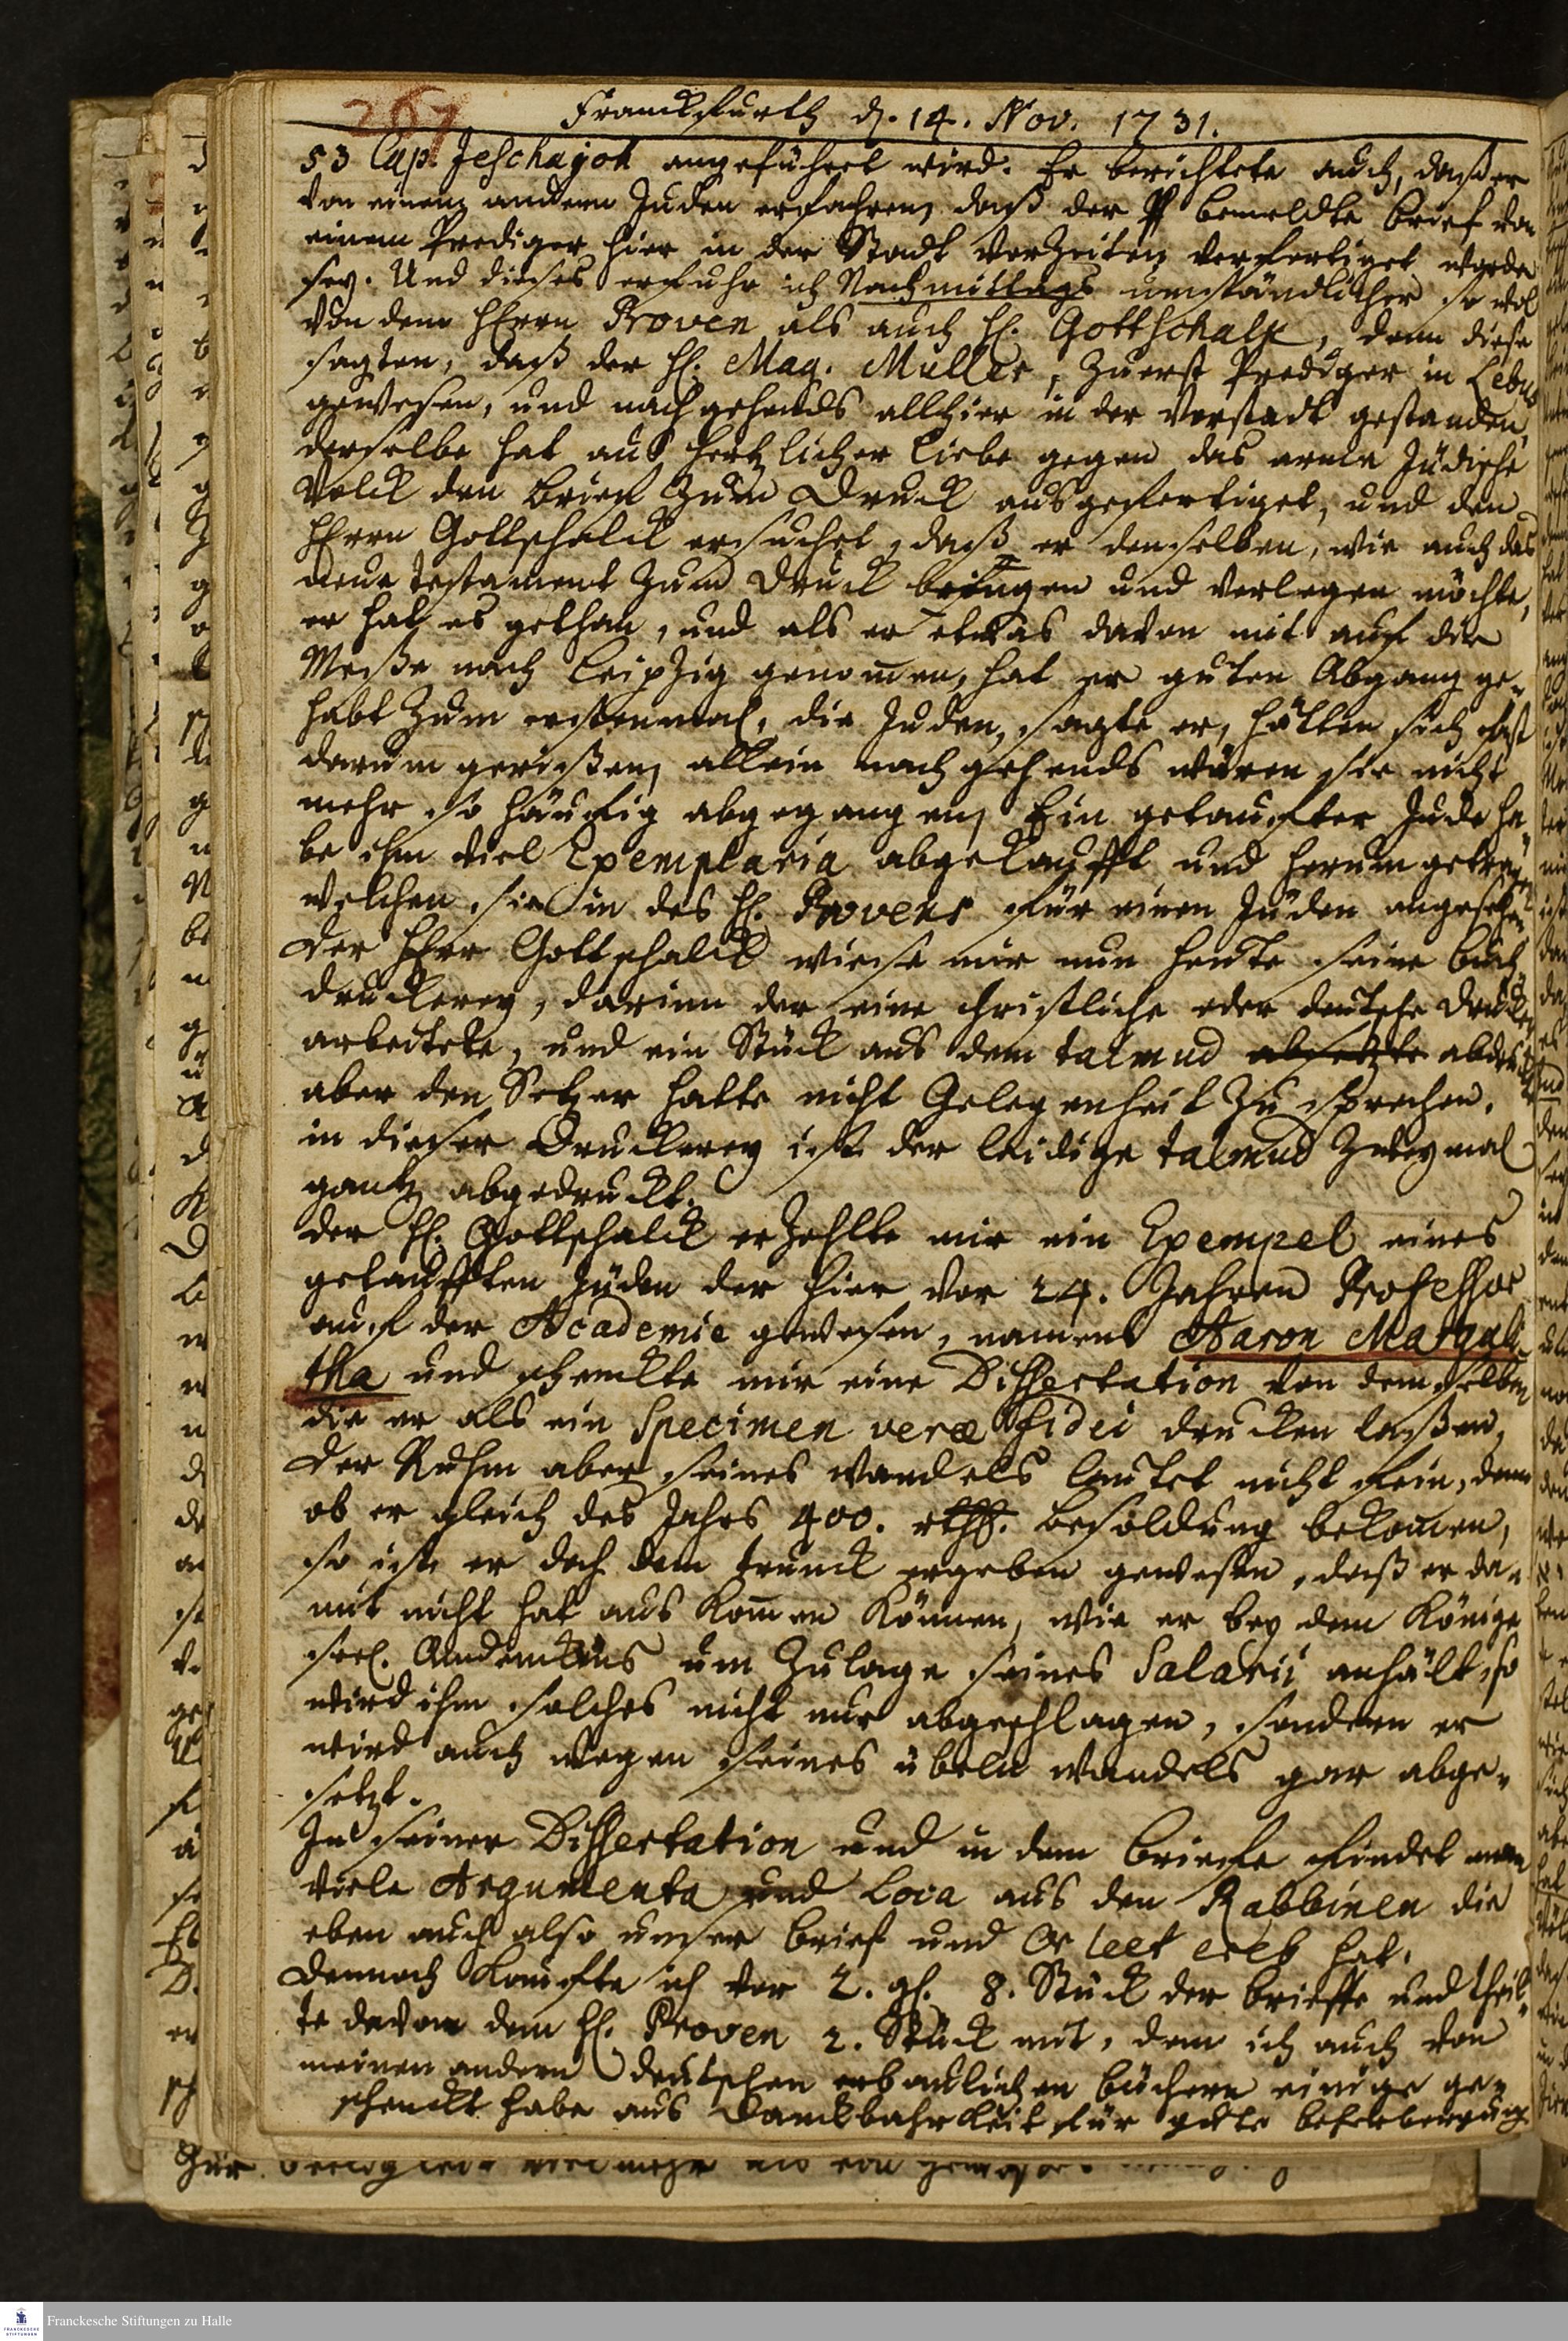 267
Franckfurth d. 14. Nov. 1731.
53 Cap. Jeschajoh angeführet wird. Er berichtete auch, daß er
von einem andern Juden erfahren, daß der bemeldte brief von
einem Prediger hier in der Stadt vorzeiten verfertiget worden
sey. Und dieses erfuhr ich Nachmittags umständlicher so wol
von dem HErrn Proven als auch H. Gottschalk, denn diese
sagten, daß der H. Mag. Muller, zuerst Prediger in Lebus
gewesen, und nachgehends allhier in der Vorstadt gestanden,
derselbe hat aus hertzlicher liebe gegen das arme Jüdische
Volck den brief zum Druck ausgefertiget, und den
HErrn Gottschalck ersuchet, daß er denselben, wie auch das
neue testament zum Druck bringen und verlegen möchte,
er hat es gethan, und als er etwas davon mit auf die
Meße nach Leipzig genommen, hat er guten Abgang ge-
habt zum erstenmal, die Juden, sagte er, hätten sich fast
darum gerißen, allein nachgehends wären sie nicht
mehr so häufig abgegangen, Ein getauffter Jude ha-
be ihm viel Exemplaria abgekaufft und herum getragen
welchen sie in des H. Provens für einen Juden angesehen
Der HErr Gottschalck wiese mir nun heute seine buch-
druckerey, darinn der eine christliche oder deutsche Drucker
arbeitete, und ein Stück aus dem talmud absetzte abdruckte
aber den Setzer hatte nicht Gelegenheit zu sprechen.
in dieser Druckerey ist der leidige talmud zweymal
gantz abgedruckt.
Der H. Gottschalck erzehlte mir ein Exempel eines
getaufften Juden der hier vor 24. Jahren Professor
auf der Academie gewesen, namens Aaron Margali-
tha und schenckte mir eine Dissertation von demselben
die er als ein Specimen veræ fidei drucken laßen,
Der Ruhm aber seines wandels lautet nicht fein, denn
ob er gleich des Jahrs 400. rthl. besoldung bekommen,
so ist er doch dem trunck ergeben gewesen, daß er da-
mit nicht hat aus kommen können, wie er bey dem Könige
seel. Andenckens um Zulage seines Salarii anhält, so
wird ihm solches nicht nur abgeschlagen, sondern er
wird auch wegen seines übeln wandels gar abge-
setzt.
In seiner Dissertation und in dem briefe findet man
viele Argumenta und Loca aus den Rabbinen die
eben auch also unser brief und Or leet ereb hat.
Dennoch kauffte ich vor 2. gl. 8. Stück der brieffe und theil-
te davon dem H. Proven 2. Stück mit, dem ich auch von
meinen andern deutschen erbaulichen büchern einige ge-
schenckt habe aus Danckbahrkeit für gute beherbergung.
Franckesche Stiftungen zu Halle